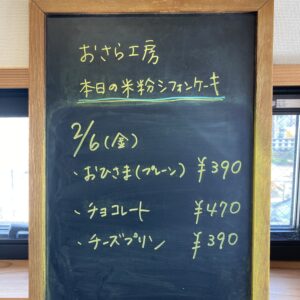 おさら工房
本日の米粉シフォンケーキ
2/6(金)
・おひさま(プレーン) ¥390
・チョコレート ¥470
・チーズプリン ¥390